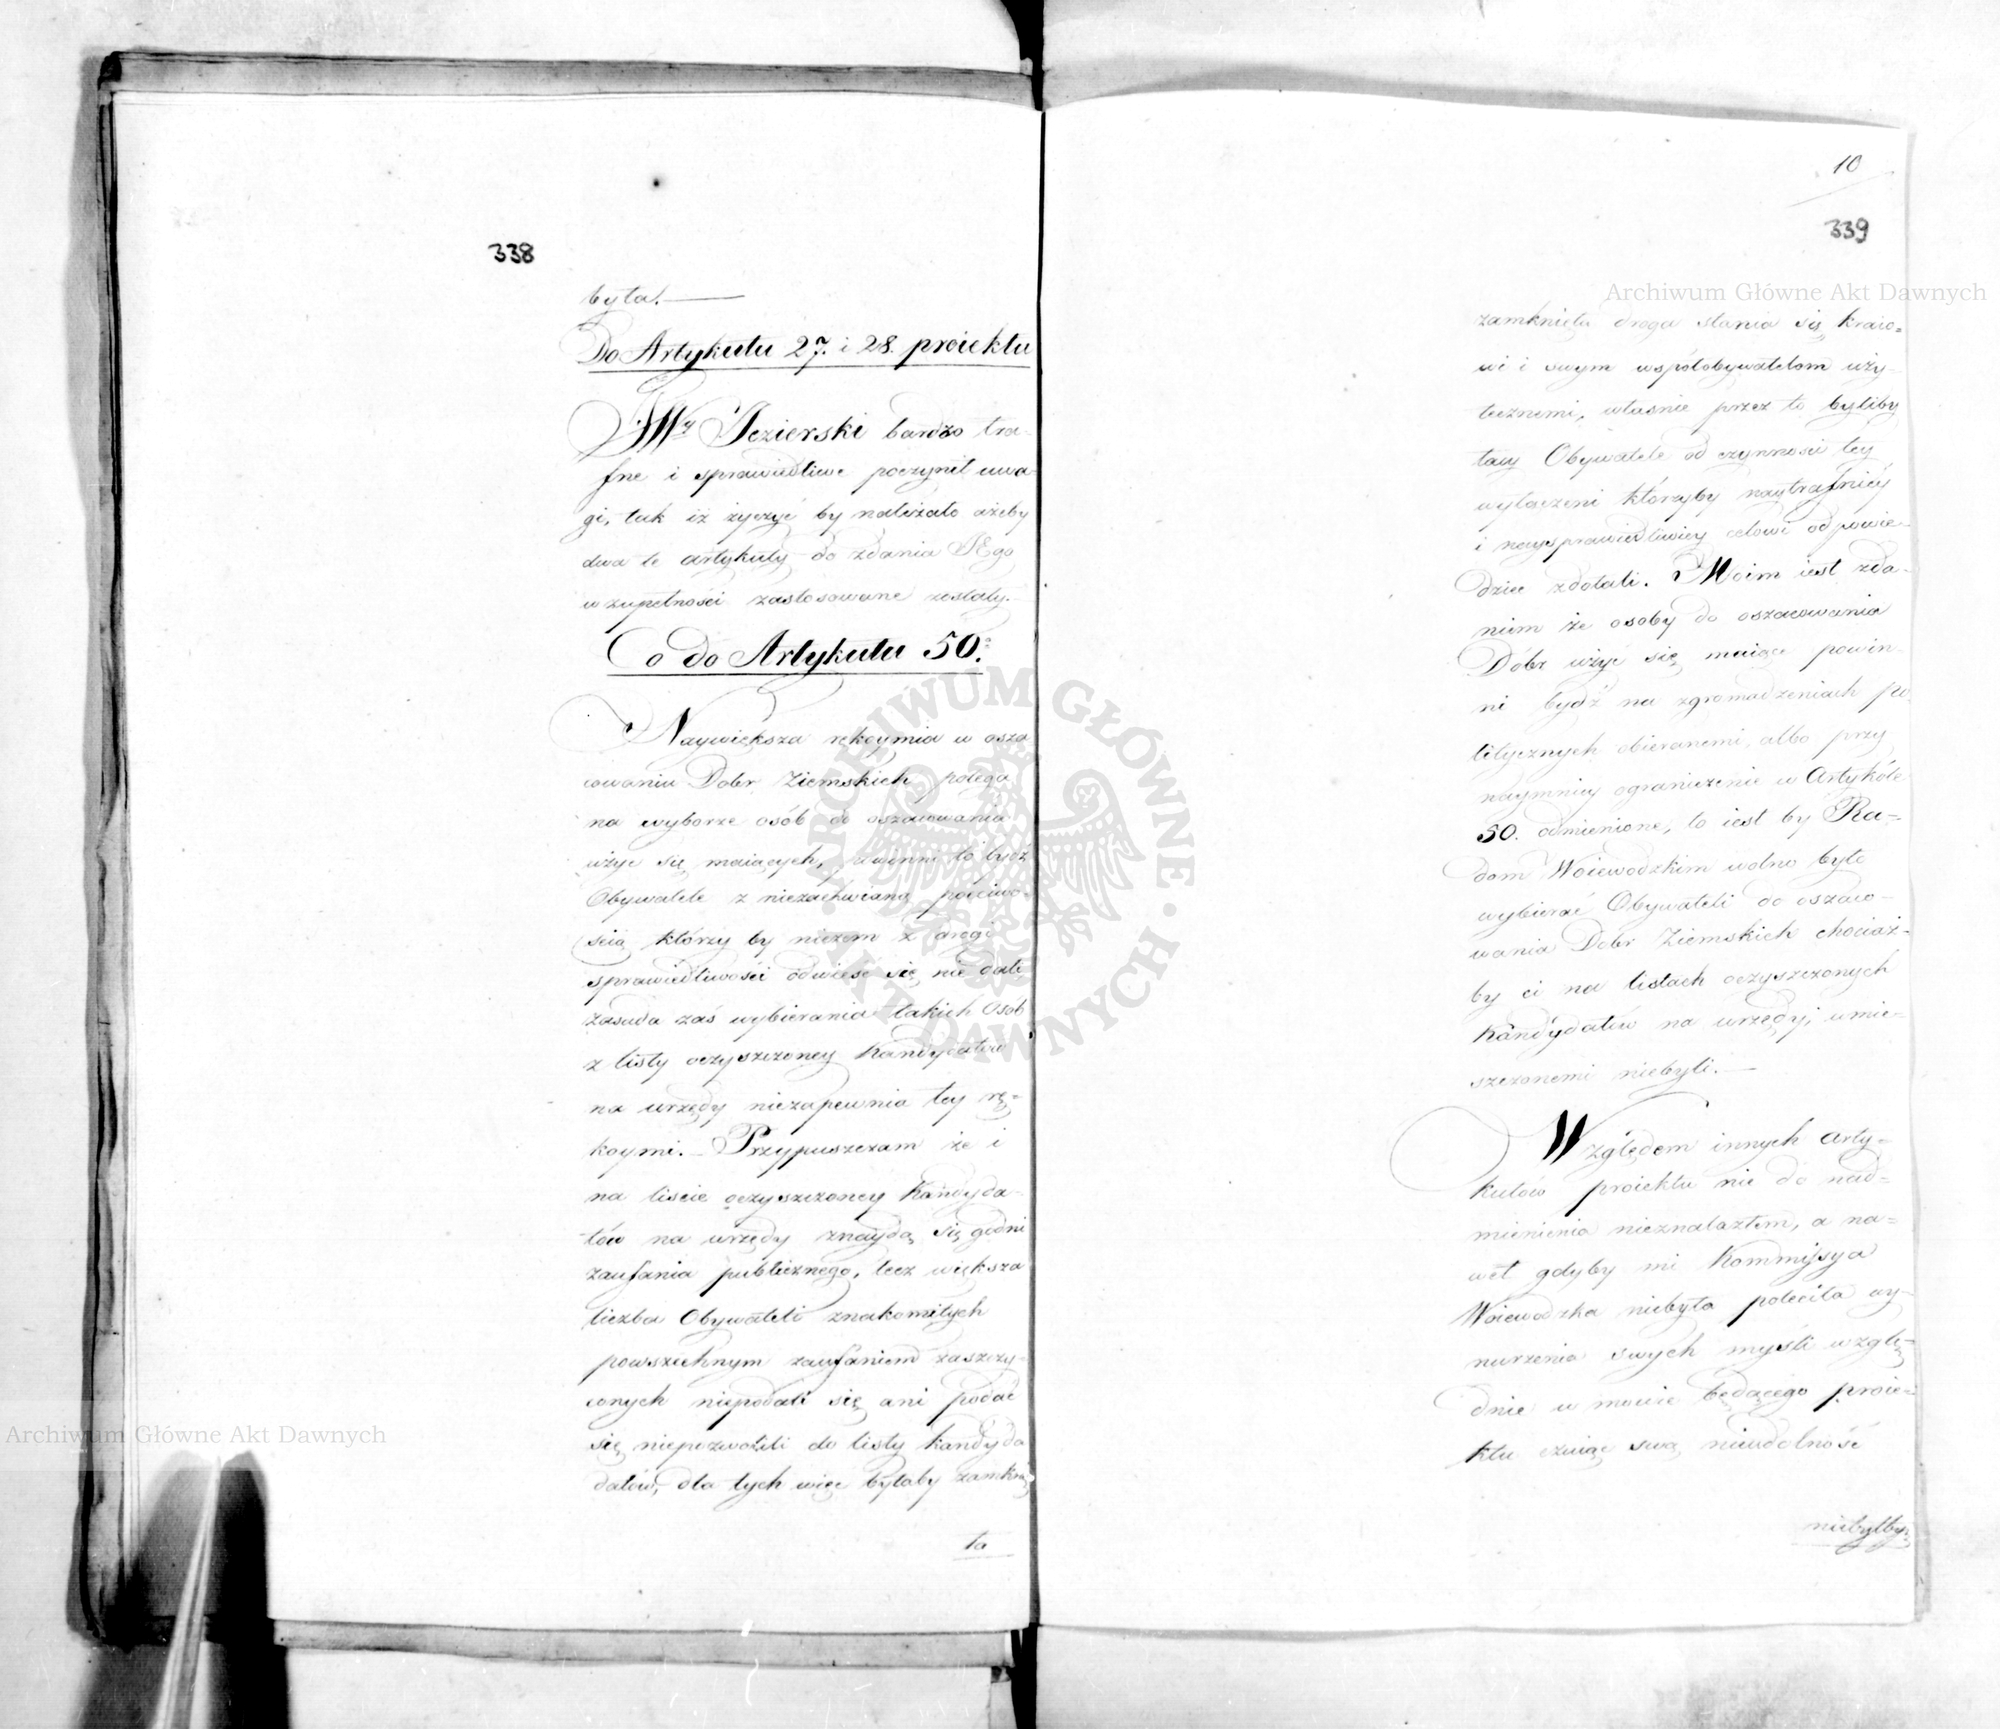 338
była. —
Do Artykułu 27. i 28. proiektu
JWy Jezierski bardzo tra-
fne i sprawiedliwe poczynił uwa-
gi, tak iż życzyć by należało ażeby
dwa te artykuły do zdania JEgo
w zupełności zastosowane zostały.—
Co do Artykułu 50.
Naywiększa rękoymia w osza
cowaniu Dobr Ziemskich polega
na wyborze osób do oszacowania
użyć się maiących, powinni to bydź
Obywatele z niezachwianą poćciwo-
ścią którzy by niczem z drogi
sprawiedliwości odwieść się nie dali
zasada zaś wybierania takich Osób
z listy oczyszczoney Kandydatów
na urzędy niezapewnia tey rę-
koymi. – Przypuszczam że i
na liście oczyszczoney Kandyda-
tów na urzędy znaydą się godni
zaufania publicznego, lecz większa
liczba Obywateli znakomitych
powszechnym zaufaniem zaszczy-
conych niepodali się ani podać
się niepozwolili do listy Kandyda
datów, dla tych więc byłaby zamknię
ta
10
339
Archiwum Główne Akt Dawnych
zamknięta droga stania się kraio-
wi i swym wspołobywatelom uży-
tecznemi, właśnie przez to byliby
tacy Obywatele od czynności tey
wyłączeni którzyby naytrafniey
i naysprawiedliwiey celowi odpowie-
dzieć zdołali. Moim iest zda-
niem że osoby do oszacowania
Dóbr użyć się maiące powin-
ni bydź na zgromadzeniach po-
litycznych obieranemi, albo przy
naymniey ograniczenie w Artykule
50. odmienione, to iest by Ra-
dom Woiewodzkim wolno było
wybierać Obywateli do oszaco-
wania Dóbr Ziemskich chociaż-
by ci na listach oczyszczonych
Kandydatów na urzędy, umie-
szczonemi niebyli. —
Względem innych arty-
kułów proiektu nic do nad-
mienienia nieznalazłem, a na-
wet gdyby mi Kommissya
Woiewodzka niebyła poleciła wy-
nurzenia swych myśli wzglę-
dnie w mowie będącego proie-
ktu czuiąc swą nieudolność
niebyłby
Archiwum Główne Akt Dawnych
ARCHIWUM GŁÓWNE AKT DAWNYCH